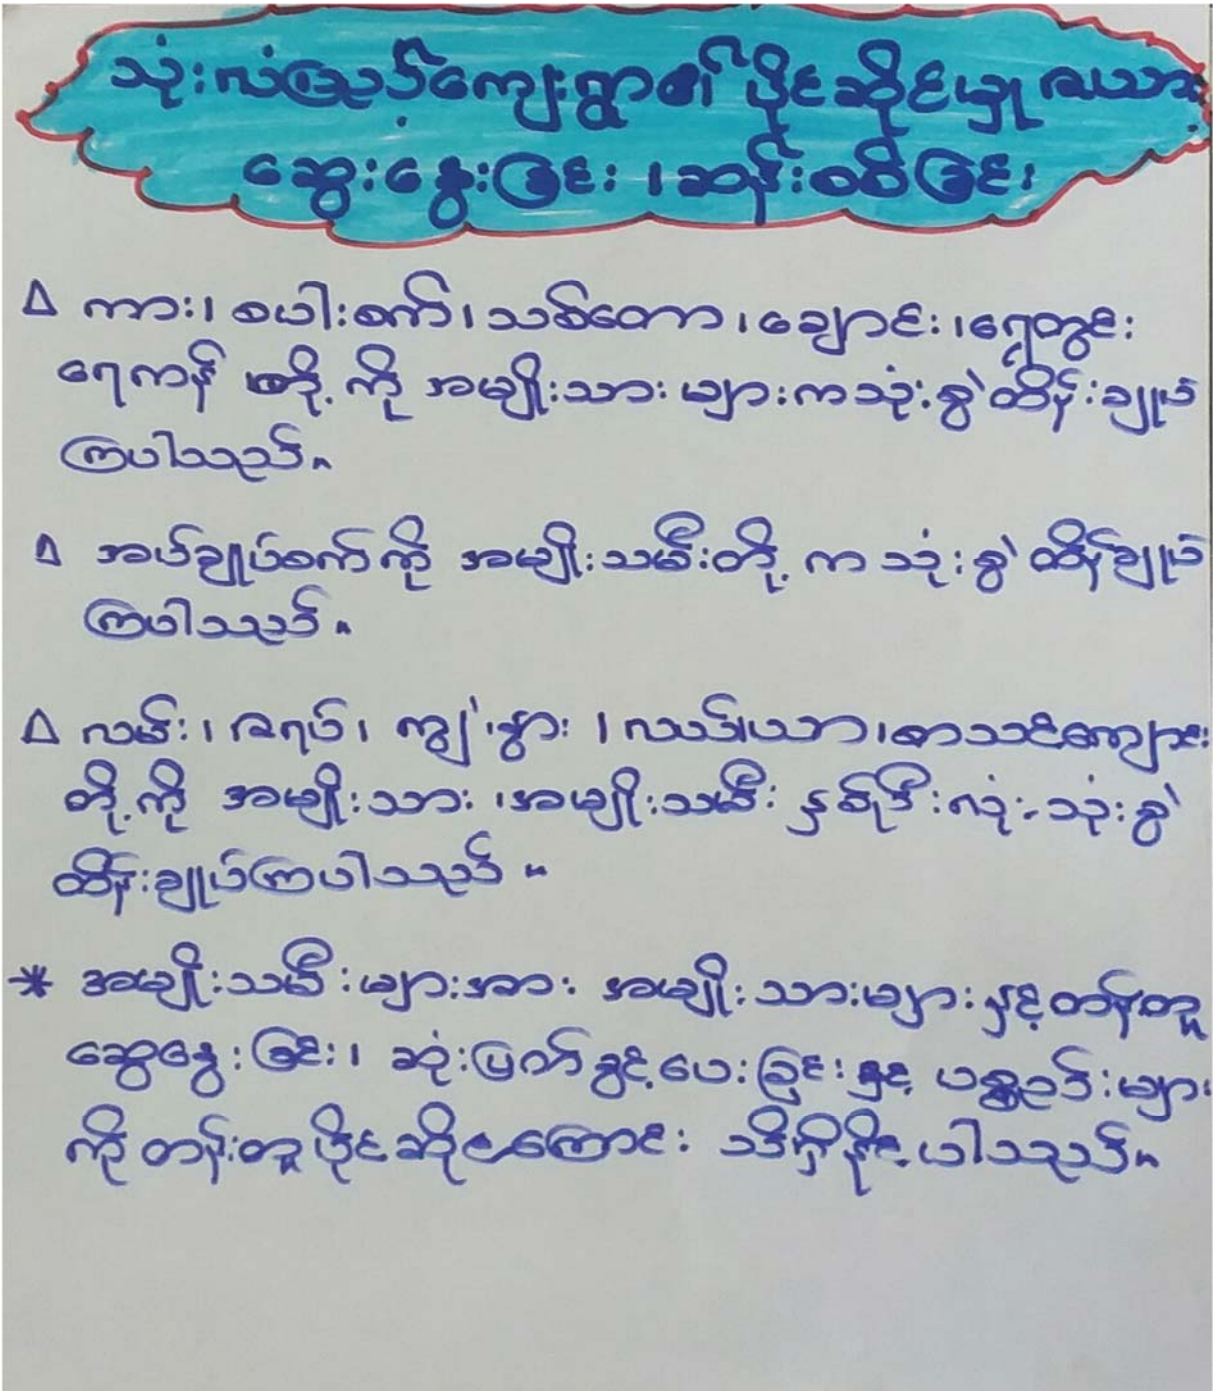 သုံးလံညှင့်ကျေးရွာ၏ ပိုင်ဆိုင်မှု ဇယား
ဆွေးနွေးခြင်း ၊ဆန်းစစ်ခြင်း
∆ ကား၊ စပါးစက်၊သစ်တော ၊ချောင်း ၊ရေတွင်း
ရေကန် တို့ကို အမျိုးသား များကသုံးစွဲထိန်းချုပ်
ကြပါသည်။
∆ အပ်ချုပ်စက်ကို အမျိုးသမီးတို့ က သုံးစွဲ ထိန်ချုပ်
ကြပါသည်။
∆ လမ်း၊ ဇရပ်၊ ကျွဲ၊နွား ၊လယ်ယာ၊စာသင်ကျောင်း
တို့ကို အမျိုးသား ၊အမျိုးသမီး နှစ်ဦးလုံး သုံးစွဲ
ထိန်းချုပ်ကြပါသည် ။
* အမျိုးသမီးများအား အမျိုးသားများနှင့်တန်တူ
ဆွေနွေးခြင်း၊ ဆုံးဖြတ်ခွင့်ပေးခြင်းနှင့် ပစ္စည်းများ
ကို တန်းတူပိုင်ဆိုင်ကြောင်း သိရှိနိုင်ပါသည်။